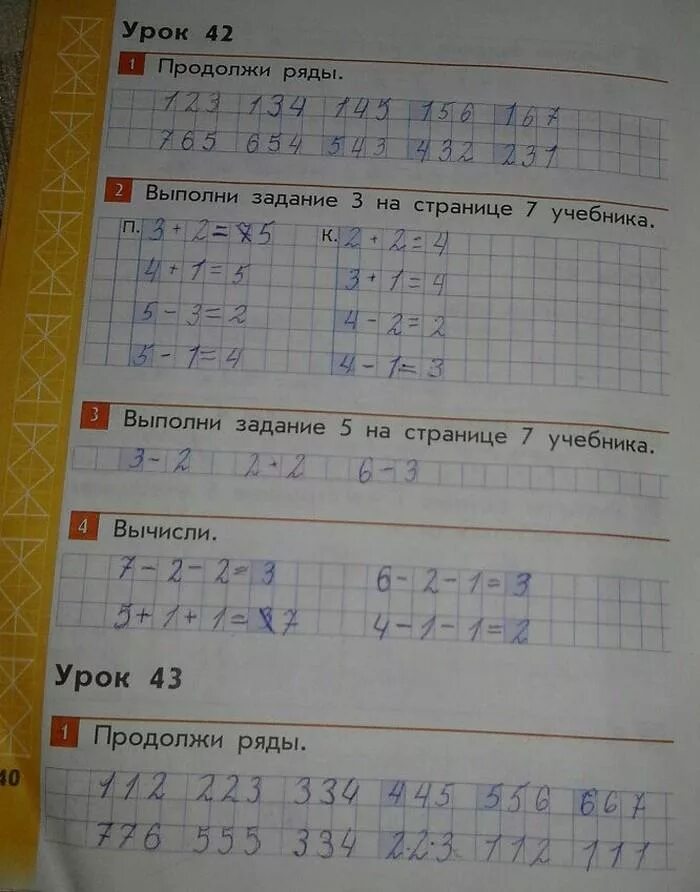 Урок 42
1 Продолжи ряды.
123 134 145 156 167
765 654 543 432 231
2 Выполни задание 3 на странице 7 учебника.
П. 3 + 2 = 5 К. 2 + 2 = 4
4 + 1 = 5 3 + 1 = 4
5 - 3 = 2 4 - 2 = 2
5 - 1 = 4 4 - 1 = 3
3 Выполни задание 5 на странице 7 учебника.
3 - 2 2 + 2 6 - 3
4 Вычисли.
7 - 2 - 2 = 3 6 - 2 - 1 = 3
5 + 1 + 1 = 7 4 - 1 - 1 = 2
Урок 43
1 Продолжи ряды.
40
112 223 334 445 556 667
776 555 334 2·2·3 112 111